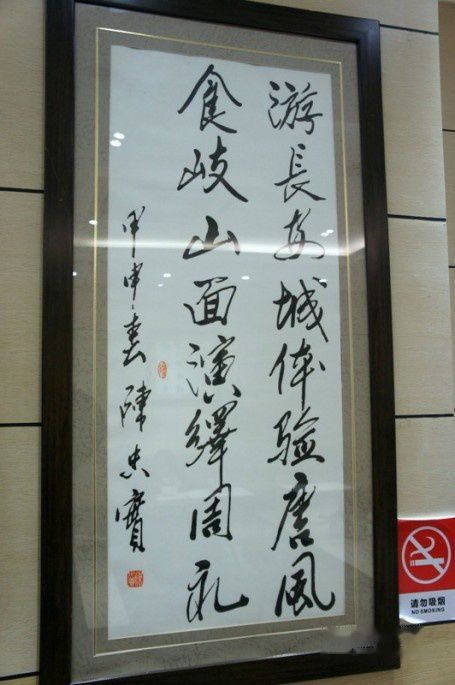 游長安城体验唐風
食岐山面演繹周礼
甲申春陳忠實
请勿吸烟
NO SMOKING